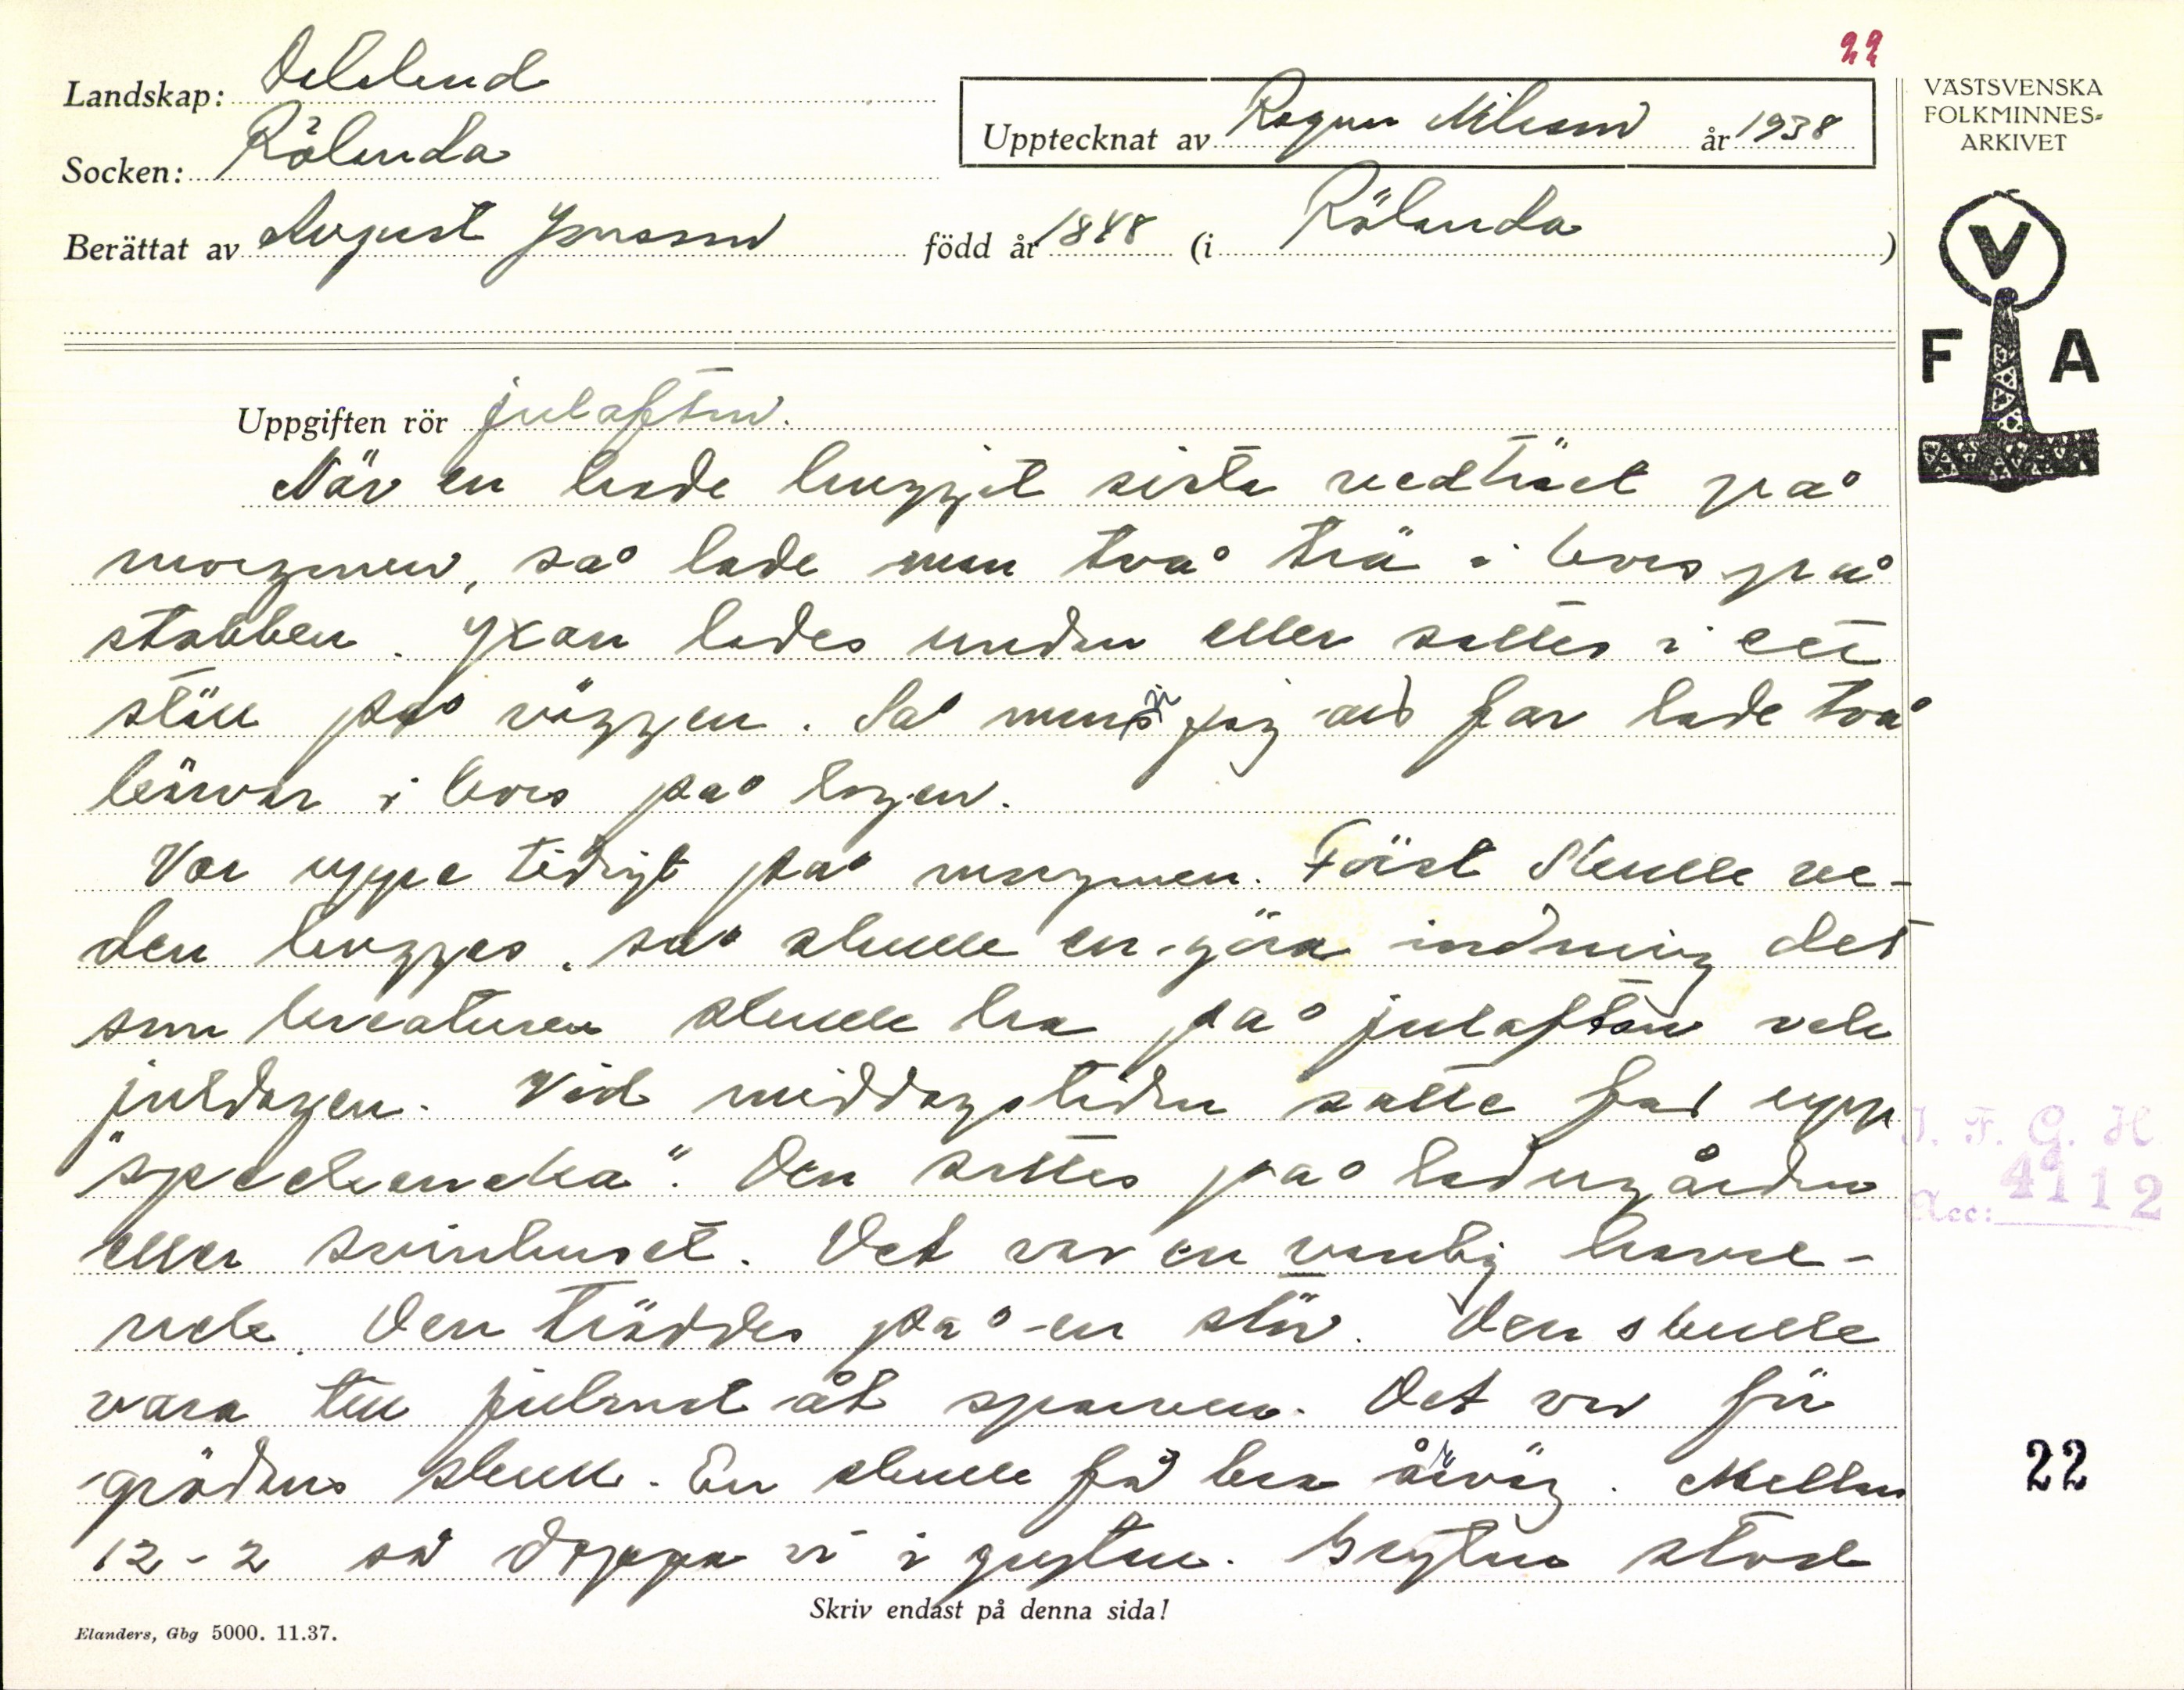 22
Landskap: Dalsland
Upptecknat av Ragnar Nilsson år 1938
VÄSTSVENSKA
FOLKMINNES-
ARKIVET
Socken: Rölanda
Berättat av August Jonasson född år 1848 (i Rölanda)
V
F A
Uppgiften rör julafton.
När en hade huggit sista vedträet på
morgonen, så lade man två trä i kors på
stabben. Yxan lades undan eller sattes i ett
ställ på väggen. Så minns jag att far lade två
kärvar i kors på logen.
Var uppe tidigt på morgonen. Först skulle ve-
den huggas, så skulle en göra i ordning det
som kreaturen skulle ha på julafton och
juldagen. Vid middagstiden satte far upp
"speckaneka". Den sattes på ladugården
eller svinhuset. Det var en vanlig havre-
nek. Den träddes på en stör. Den skulle
vara till julmat åt sparven. Det var för
grödans skull. En skulle få bra årväg. Mellan
12-2 så doppa vi i grytan. Grytan stod
Skriv endast på denna sida!
Elanders, Gbg 5000. 11.37.
I. F. G. H.
Acc: 4112
22